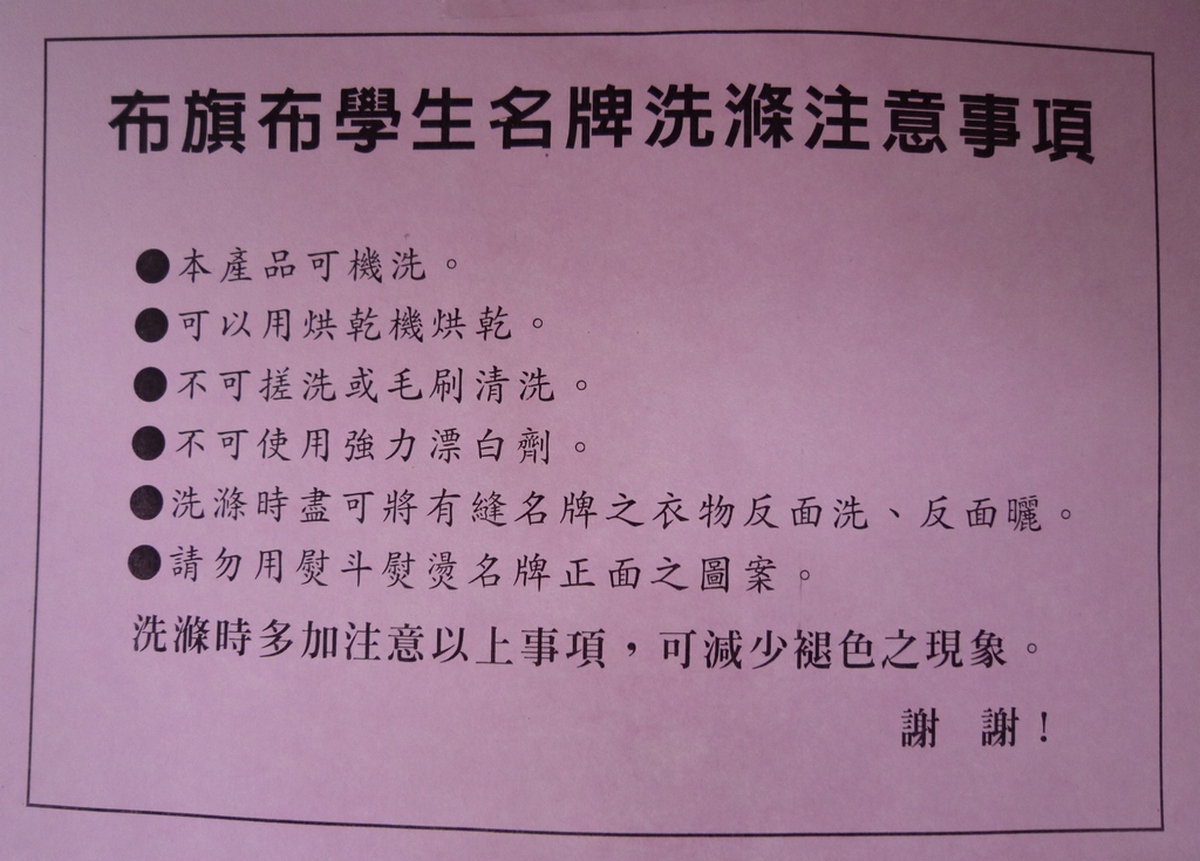 布旗布學生名牌洗滌注意事項
●本產品可機洗。
●可以用烘乾機烘乾。
●不可搓洗或毛刷清洗。
●不可使用強力漂白劑。
●洗滌時盡可將有縫名牌之衣物反面洗、反面曬。
●請勿用熨斗熨燙名牌正面之圖案。
洗滌時多加注意以上事項，可減少褪色之現象。
謝 謝！